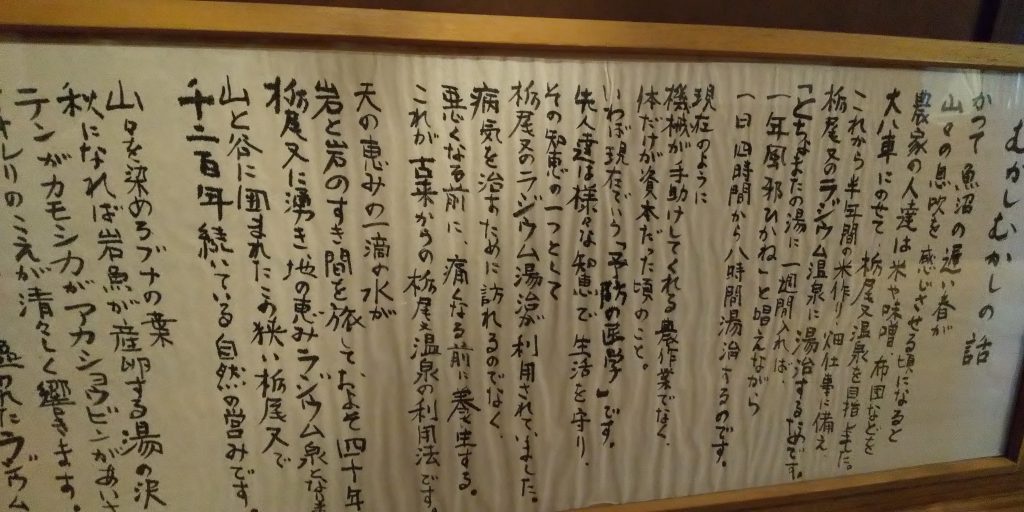 むかしむかしの話
かつて魚沼の遅い春が
山々の息吹を感じさせる頃になると
農家の人達は米や味噌、布団などを
大八車にのせて、栃尾又温泉を目指した。
これから半年間の米作り、畑仕事に備え
栃尾又のラジウム温泉に湯治するためです。
「とちおまたの湯に一週間入れば、
一年風邪ひかね」と唱えながら
一日四時間から八時間湯治するのです。
現在のように
機械が手助けしてくれる農作業でなく、
体だけが資本だった頃のこと。
いわば現在でいう「予防の医学」です。
先人達は様々な知恵で生活を守り、
その知恵の一つとして
栃尾又のラジウム湯治が利用されていました。
病気を治すために訪れるのでなく、
悪くなる前に、痛くなる前に養生する。
これが古来からの栃尾又温泉の利用法です。
天の恵みの一滴の水が
岩と岩のすき間を旅して、およそ四十年
栃尾又に湧き、地の恵みラジウム泉となる
山と谷に囲まれたこの狭い栃尾又で
千二百年続いている自然の営みです。
山々を染めるブナの葉
秋になれば岩魚が産卵する湯の沢
テンがカモシカがアカショウビンがあいさ
のこえが清々しく響きます。
ラジウム